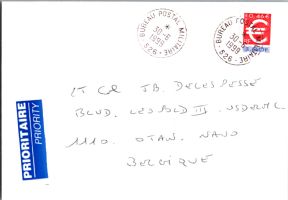 BUREAU POSTAL MILITAIRE
30-
1999
526
BUREAU POSTAL MILITAIRE
30-
1999
526
0,46 €
LT COL JB. DELESPESSE
BLVD. LEOPOLD III
1110. OTAN. NATO
BELGIQUE
PRIORITAIRE
PRIORITY